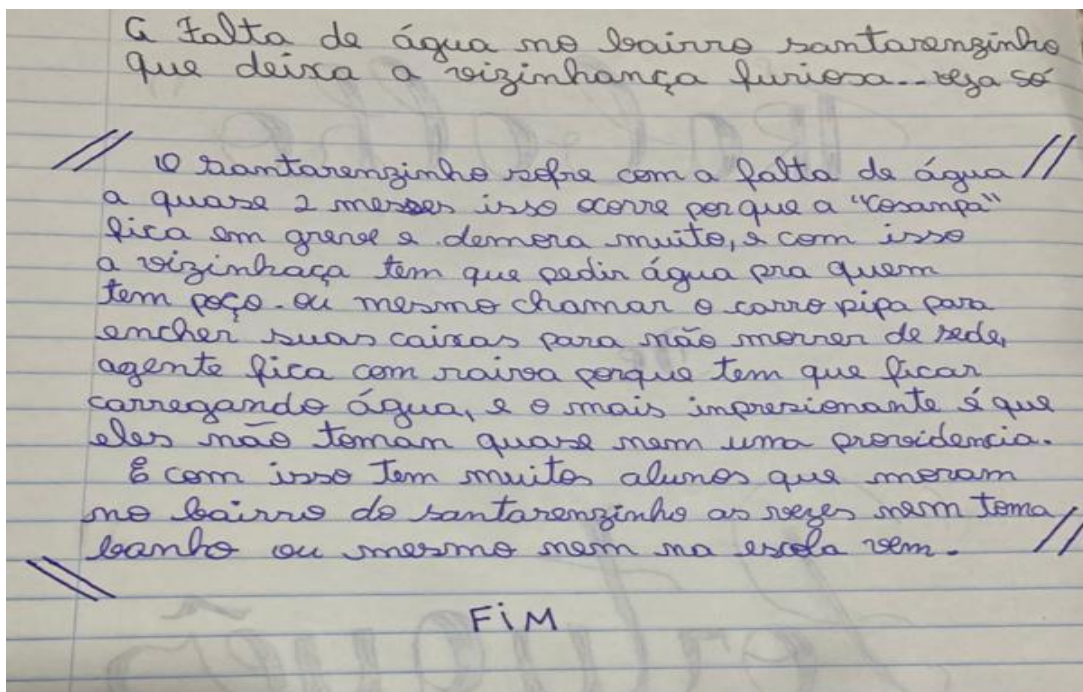 A Falta de água no bairro santarenzinho
que deixa a vizinhança furiosa... veja só
O Santarenzinho sofre com a falta de água
a quase 2 messes isso ocorre porque a "Cosanpa"
fica em greve e demora muito, e com isso
a vizinhaça tem que pedir água pra quem
tem poço. ou mesmo chamar o carro pipa para
encher suas caixas para não morrer de sede,
agente fica com raiva porque tem que ficar
carregando água, e o mais impresionante é que
eles não tomam quase nem uma providencia.
E com isso tem muitos alunos que moram
no bairro do santarenzinho as vezes nem toma
banho ou mesmo nem na escola vem.
FiM